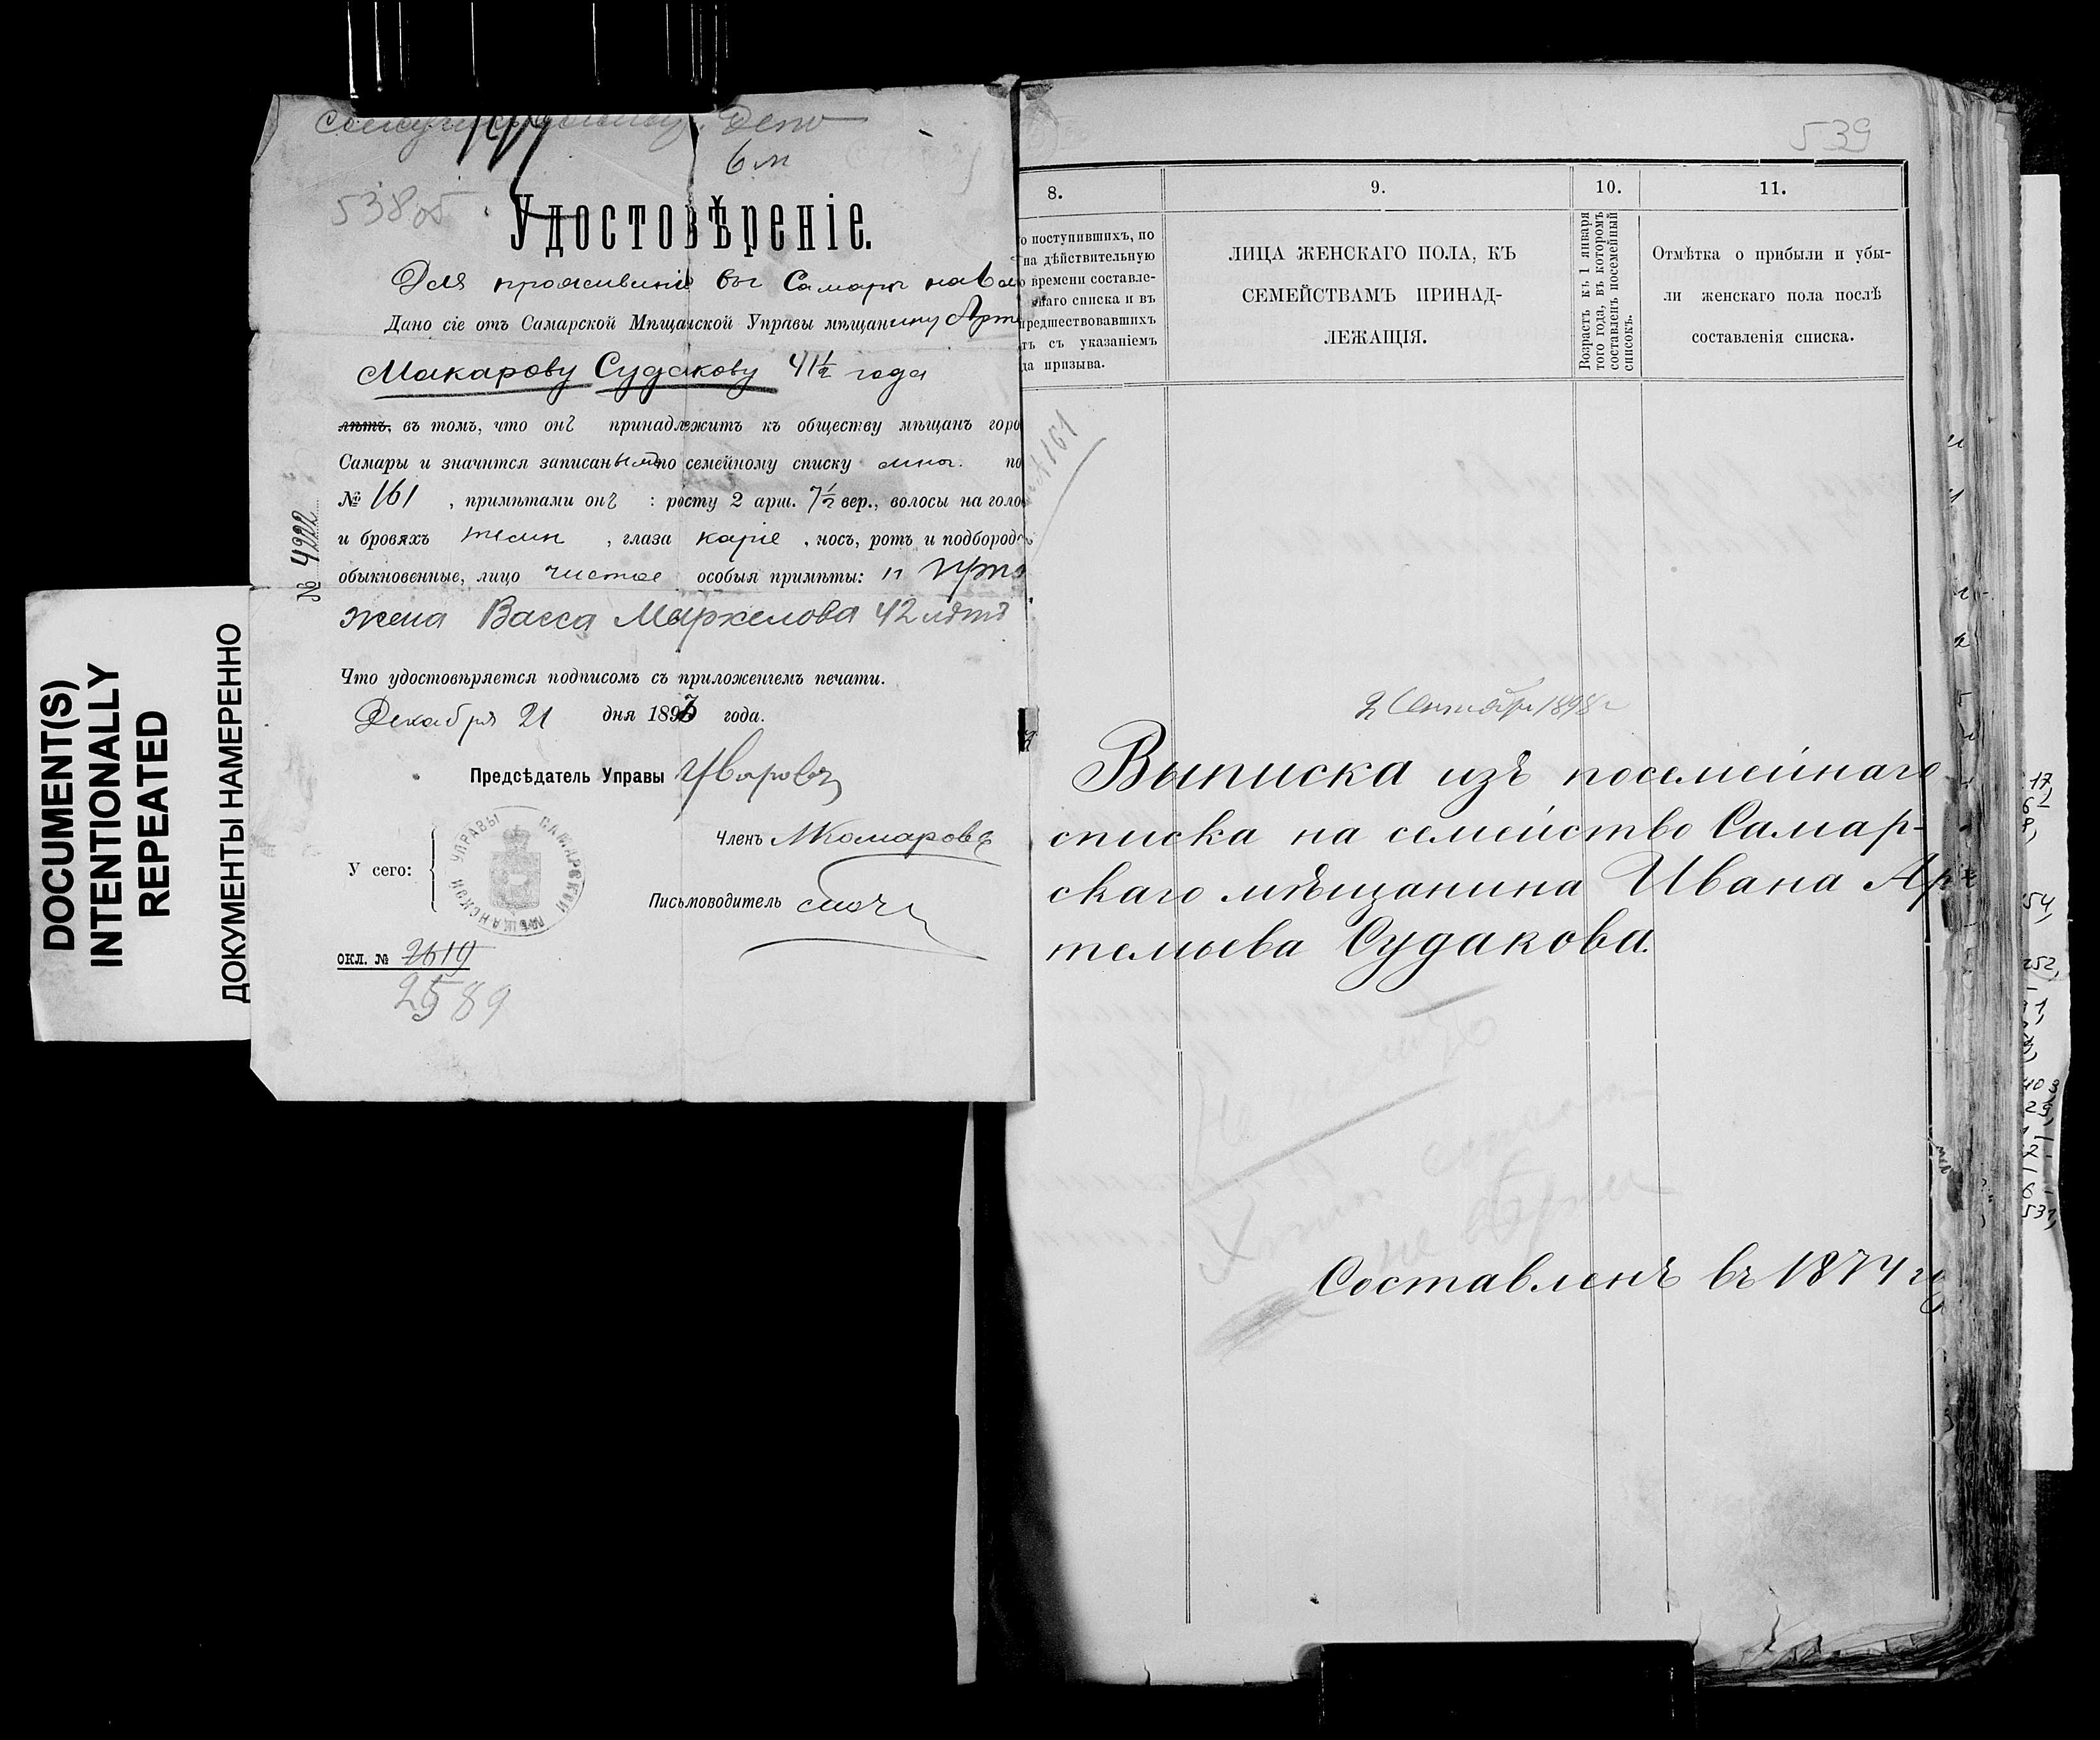 DOCUMENT(S)
INTENTIONALLY
REPEATED
ДОКУМЕНТЫ НАМЕРЕННО
Депо
6 м
538 об
Удостовѣреніе.
Для проживанія въ Самарѣ на 6
Дано сіе отъ Самарской Мѣщанской Управы мѣщанину Арте
Макарову Судакову 41½ года
лѣтъ, въ томъ, что онъ принадлежитъ къ обществу мѣщанъ горо
Самары и значится записаннымъ по семейному списку по
№ 161, примѣтами онъ: росту 2 арш. 7½ вер., волосы на голо
и бровяхъ темн, глаза каріе, носъ, ротъ и подбородо
обыкновенные, лицо чистое особыя примѣты:
жена Васса Маркелова 42 лѣтъ
Что удостовѣряется подписомъ съ приложеніемъ печати.
Декабря 21 дня 1893 года.
Предсѣдатель Управы
Членъ Комаровъ
У сего:
САМАРСКОЙ МѢЩАНСКОЙ УПРАВЫ
Письмоводитель
ОКЛ. № 2619
2589
№ 4222
539
8.
9.
10.
11.
о поступившихъ, по
на дѣйствительную
о времени составле-
наго списка и въ
предшествовавшихъ
ть съ указаніемъ
да призыва.
ЛИЦА ЖЕНСКАГО ПОЛА, КЪ
СЕМЕЙСТВАМЪ ПРИНАД-
ЛЕЖАЩІЯ.
Возрастъ къ 1 января
того года, въ которомъ
составленъ посемейный
списокъ.
Отмѣтка о прибыли и убы-
ли женскаго пола послѣ
составленія списка.
161
2 Сентября 1898 г
Выписка изъ посемейнаго
списка на семейство Самар-
скаго мѣщанина Ивана Ар
темьева Судакова.
Составленъ въ 1874 г